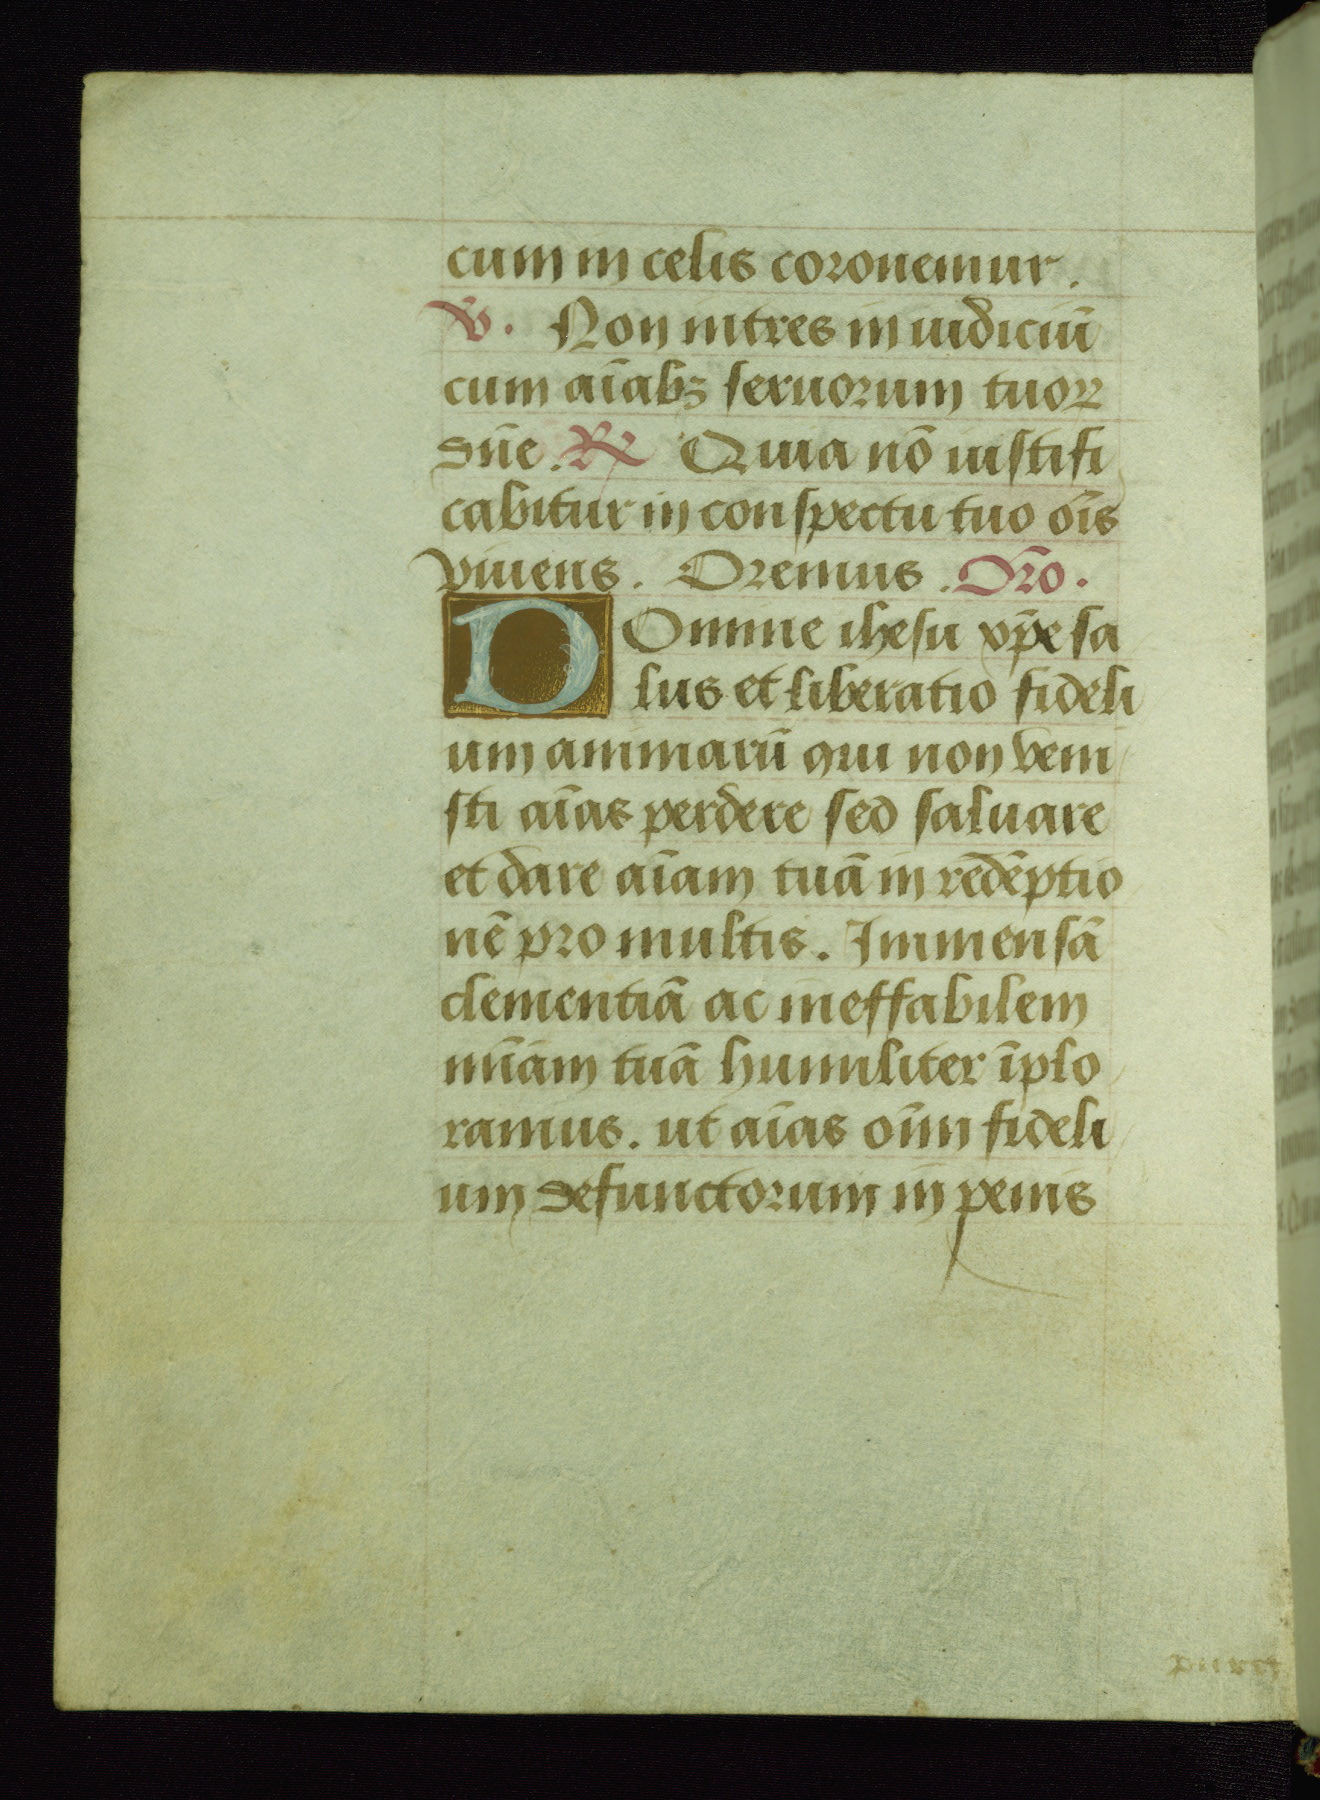 cum in celis coronemur.
℣. Non intres in iudiciū
cum aīabꝫ seruorum tuoꝝ
dn̄e. ℟ Quia nō iustifi
cabitur in conspectu tuo oīs
viuens. Oremus. Or̄o.
DOmine ihesu xp̄e sa
lus et liberatio fideli
um animarū qui non veni
sti aīas perdere sed saluare
et dare aīam tuā in rēdēptio
nē pro multis. Immensā
clementiā ac ineffabilem
mīam tuā humiliter īplo
ramus. ut aīas oīm fideli
um defunctorum in penis